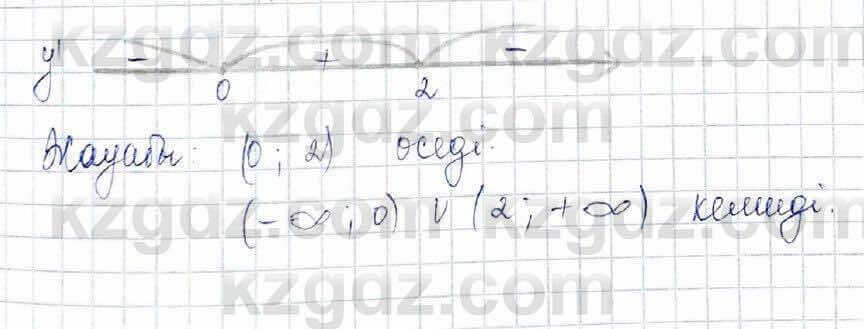 kzgdz.com kzgdz.com
y' - + -
0 2
kzgdz.com
Жауабы: (0; 2) өседі.
kzgdz.com kzgdz.com
(-∞; 0) ∪ (2; +∞) кемиді.
kzgdz.com